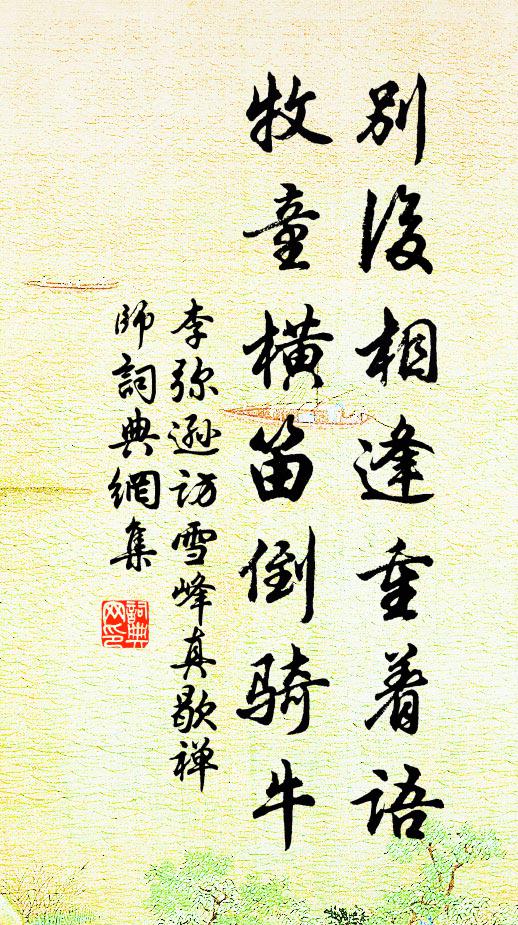 别後相逢重着语
牧童横笛倒骑牛
李弥逊访雪峰真歇禅
师词典網集
詞典
网印